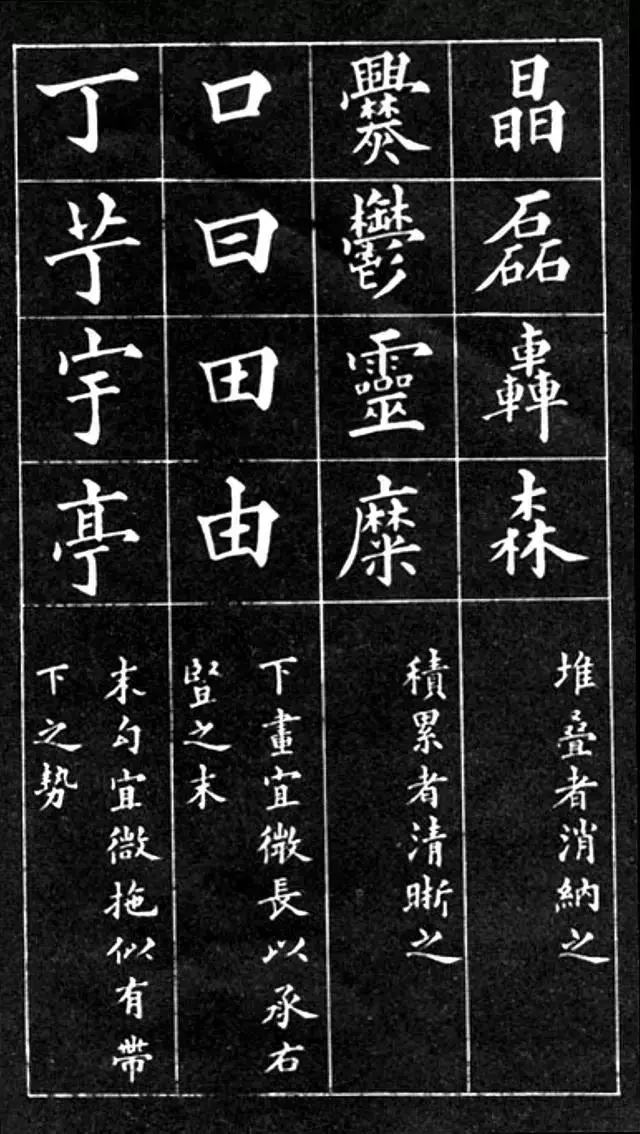 晶
磊
轟
森
堆叠者消納之
爨
鬱
靈
糜
積累者清晰之
口
曰
田
由
下畫宜微長以承右
竪之末
丁
艼
宇
亭
末勾宜微拖似有帶
下之勢